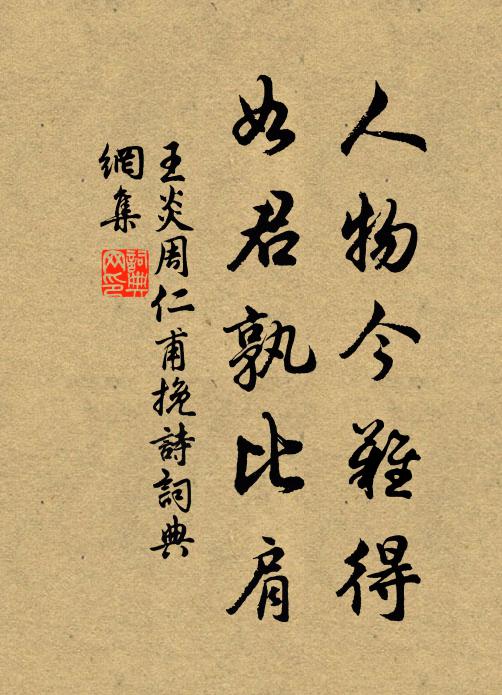 人物今難得
如君孰比肩
王炎周仁甫挽詩詞典
網集
詞典
网印